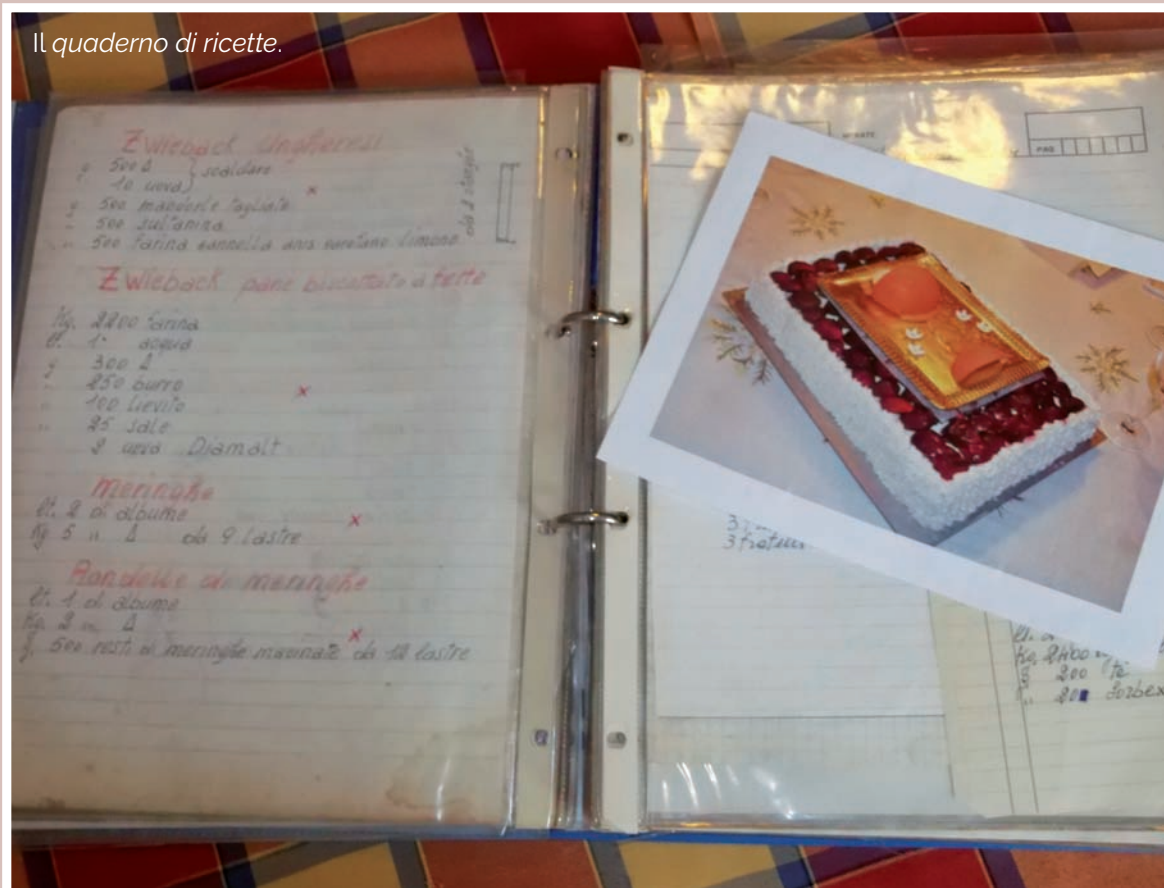 Il quaderno di ricette.
Zwieback Ungheresi
g 500 Δ } scaldare
10 uova }
" 500 mandorle tagliate
" 500 sultanina
" 500 farina cannella anis limone
da 2
Zwieback pane biscottato a fette
Kg. 2200 farina
lt. 1 acqua
g 300 Δ
" 250 burro
" 100 lievito
" 25 sale
2 uova Diamalt
Meringhe
lt. 2 di albume
Kg 5 " Δ da 9 lastre
Rondelle di meringhe
lt. 1 di albume
Kg. 2 " Δ
g. 500 resti di meringhe macinate da 12 lastre
PAG
3
3
lt. 2
Kg. 2400
200